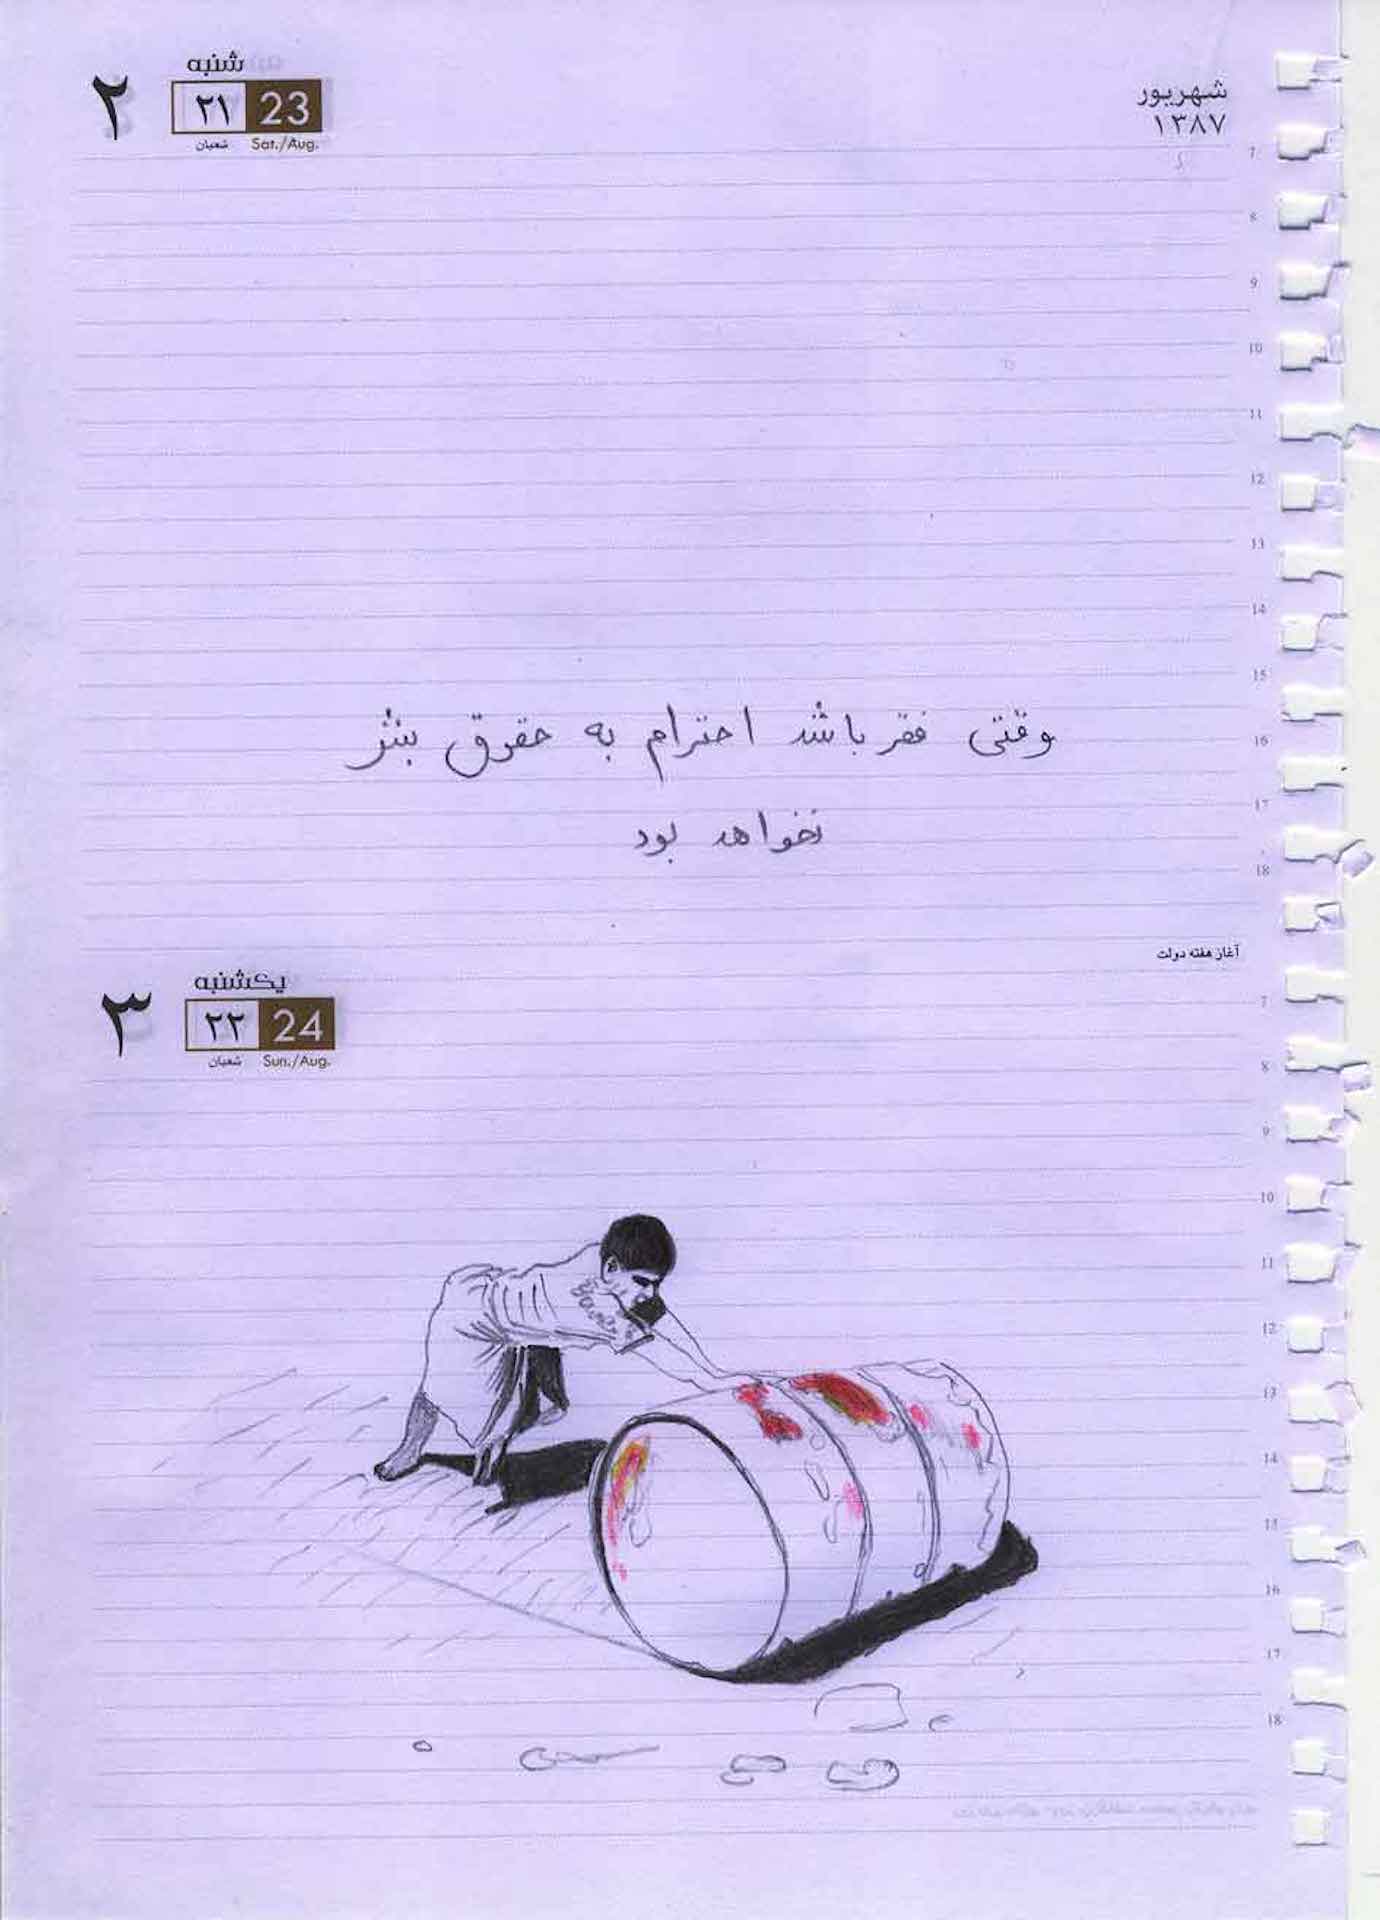 شنبه
۲ ۲۱ 23
شعبان Sat./Aug.
شهریور
۱۳۸۷
7
8
9
10
11
12
13
14
15
وقتی فقر باشد احترام به حقوق بشر
16
17
نخواهد بود
18
آغاز هفته دولت
یکشنبه
۳ ۲۲ 24
شعبان Sun./Aug.
7
8
9
10
11
12
13
14
15
16
17
18